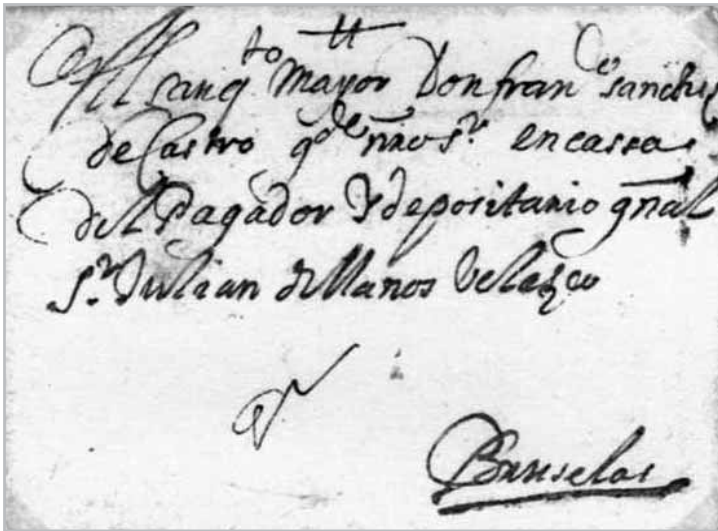 Al sargto Mayor Don franco sanches
de Castro gde nro Sr en cassa
del Pagador y depositario gnal
Sr Julian de llanos Velazco
Bruselas